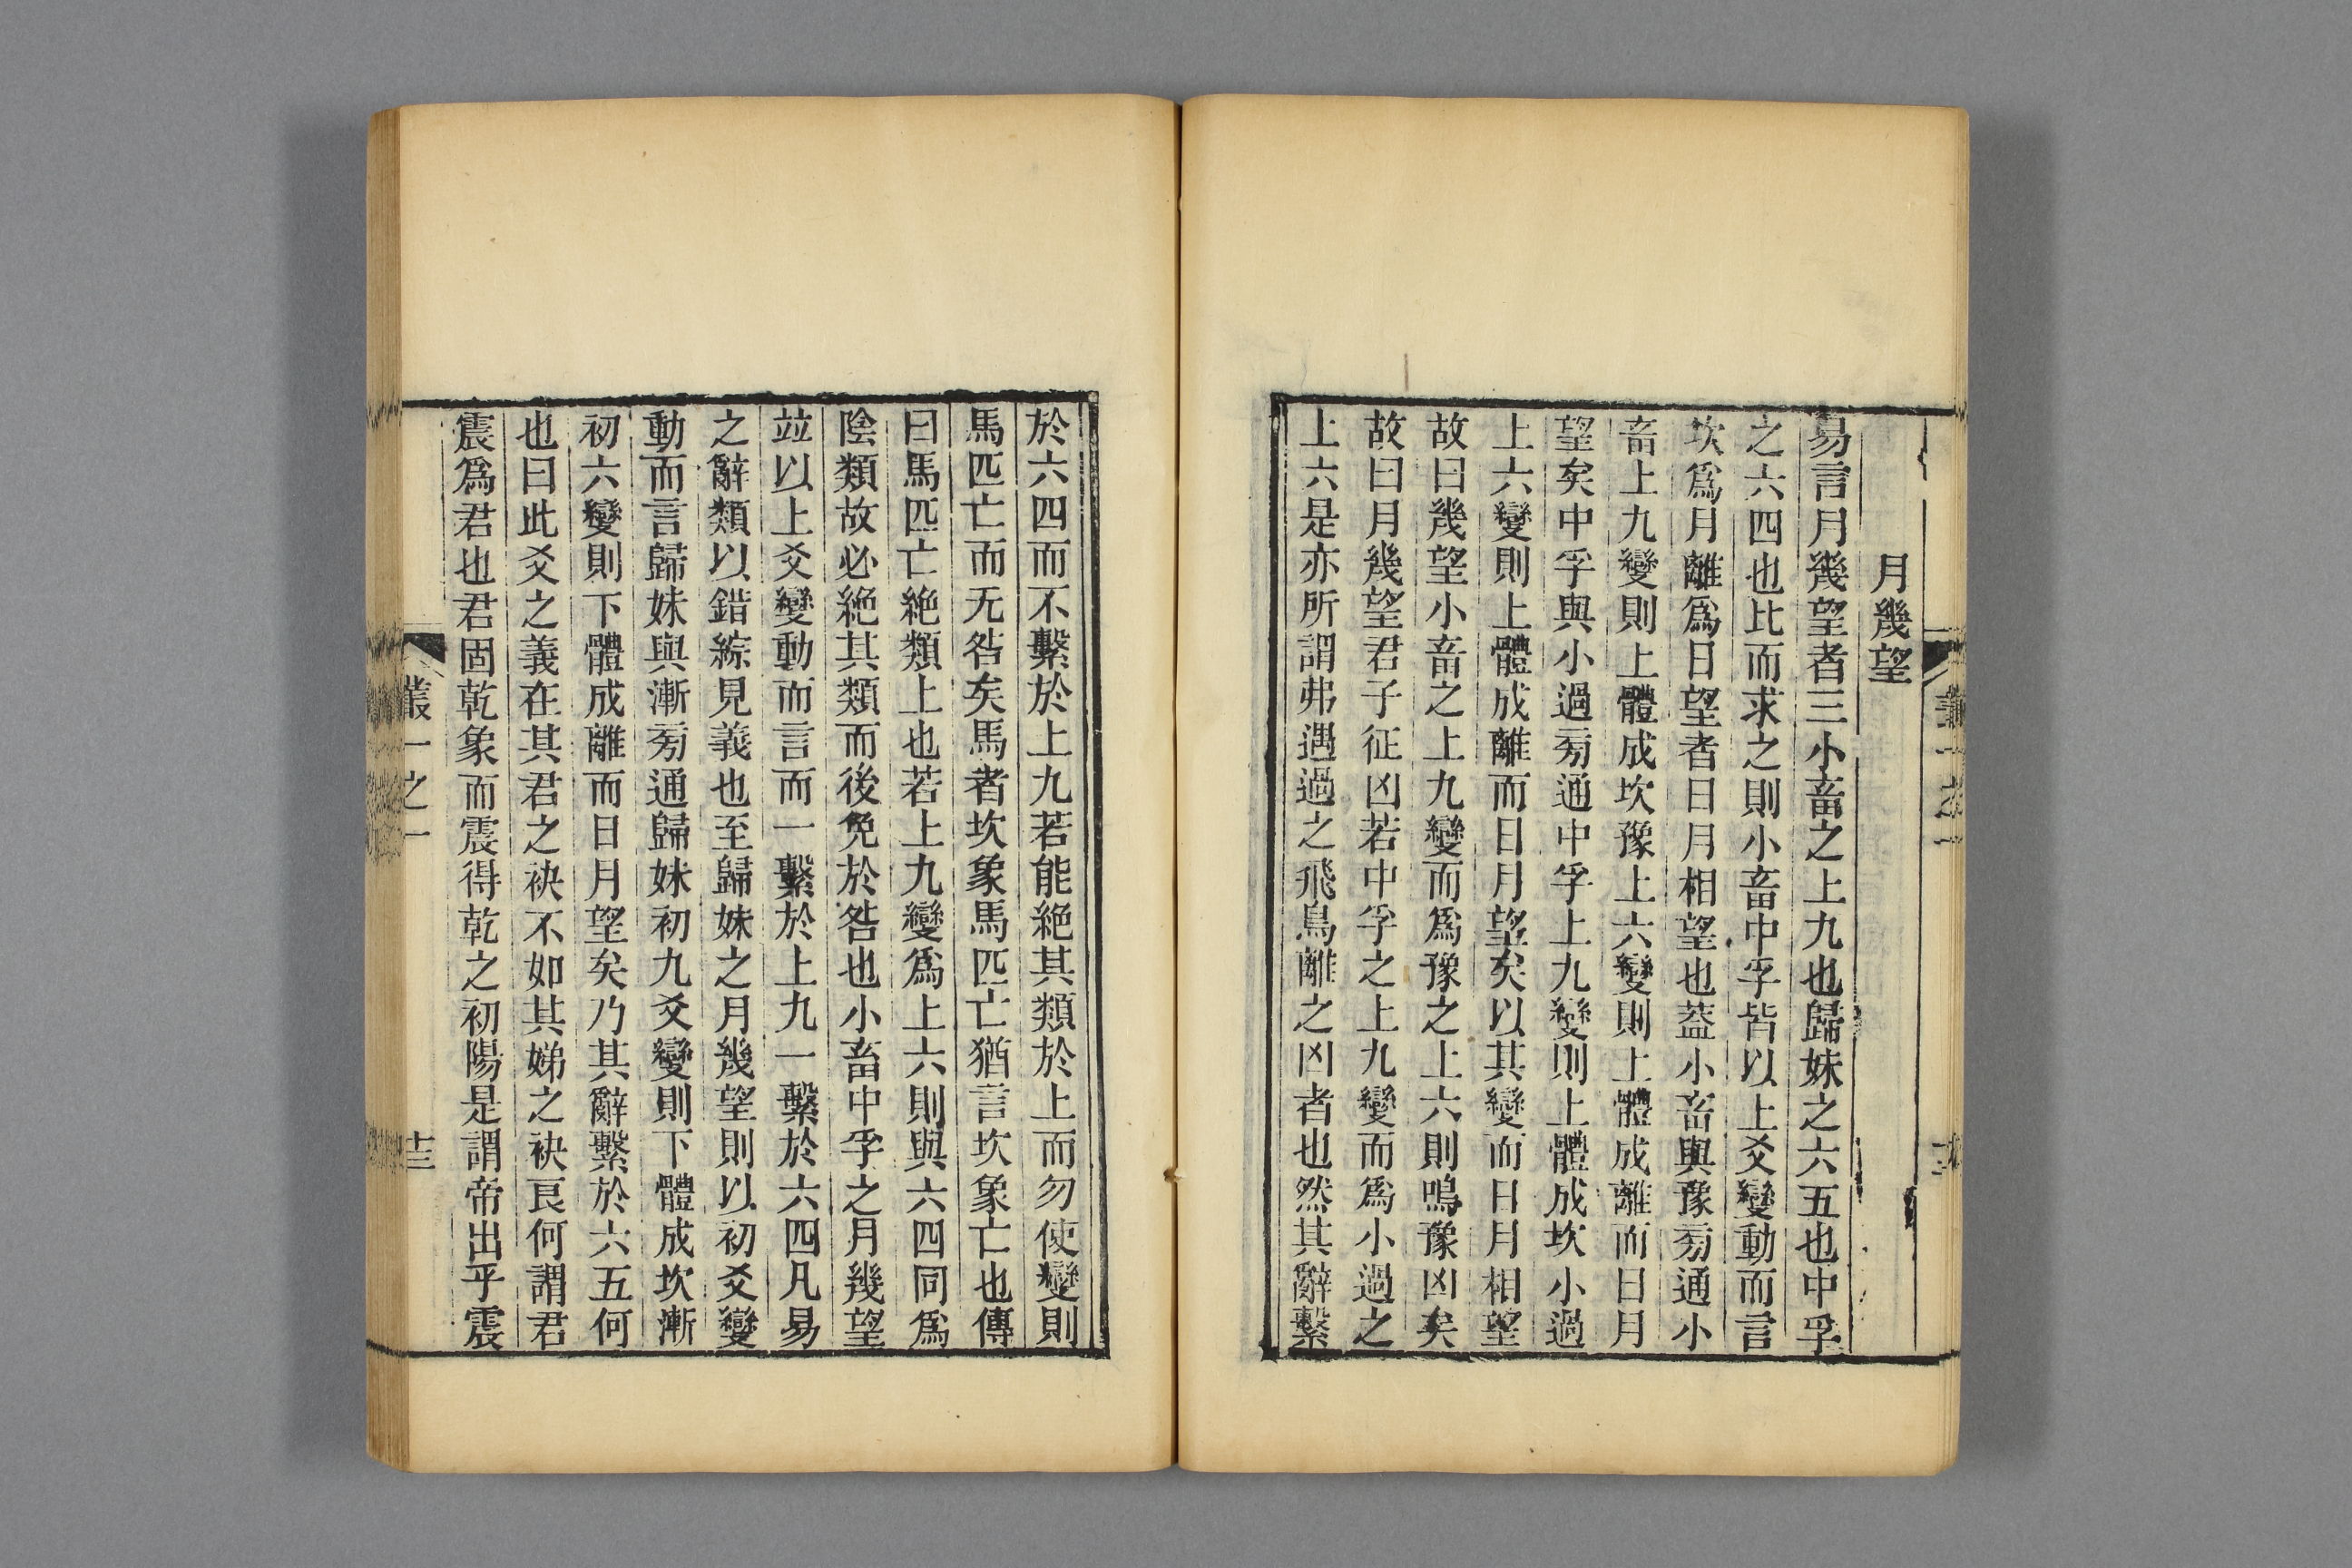 月幾望
易言月幾望者三小畜之上九也歸妹之六五也中孚
之六四也比而求之則小畜中孚皆以上爻變動而言
坎爲月離爲日望者日月相望也葢小畜與豫㫄通小
畜上九變則上體成坎豫上六變則上體成離而日月
望矣中孚與小過㫄通中孚上九變則上體成坎小過
上六變則上體成離而日月望矣以其變而日月相望
故曰幾望小畜之上九變而爲豫之上六則鳴豫凶矣
故曰月幾望君子征凶若中孚之上九變而爲小過之
上六是亦所謂弗遇過之飛鳥離之凶者也然其辭繫
於六四而不繫於上九若能絶其類於上而勿使變則
馬匹亡而无咎矣馬者坎象馬匹亡猶言坎象亡也傳
曰馬匹亡絶類上也若上九變爲上六則與六四同爲
陰類故必絶其類而後免於咎也小畜中孚之月幾望
竝以上爻變動而言而一繫於上九一繫於六四凡易
之辭類以錯綜見義也至歸妹之月幾望則以初爻變
動而言歸妹與漸㫄通歸妹初九爻變則下體成坎漸
初六變則下體成離而日月望矣乃其辭繫於六五何
也曰此爻之義在其君之袂不如其娣之袂良何謂君
震爲君也君固乾象而震得乾之初陽是謂帝出乎震
叢一之一
十三